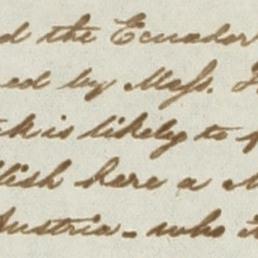 d the Ecuador
ed by Mess.
k is likely to
lish here a
Austria - who